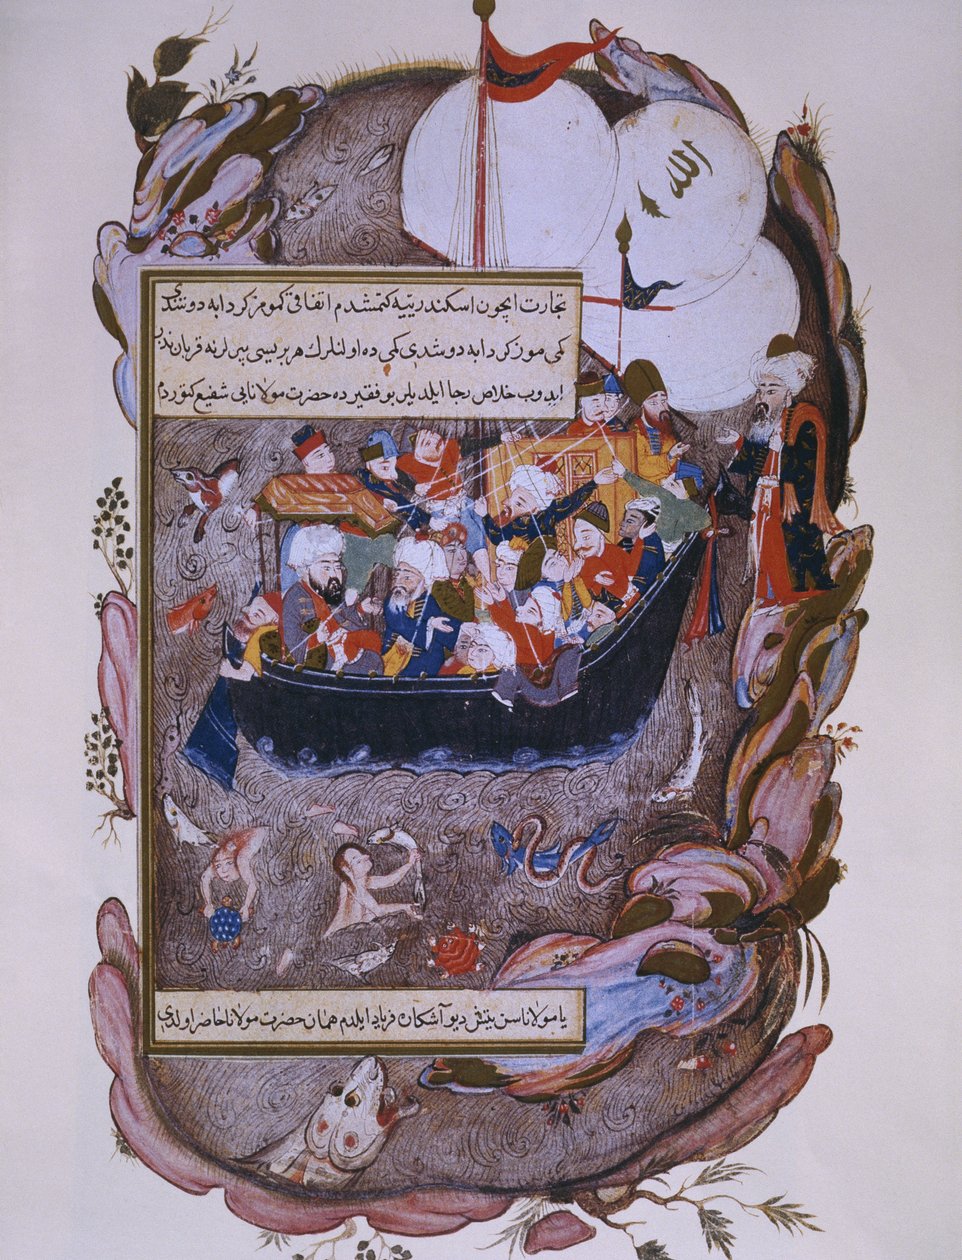 الله
تجارت ایچون اسکندریّیه کتمشدم اتفاقی کومز کردابه دوشدی
کی موز کردابه دوشدی کی ده اولنلرك هر بریسی پیرلرنه قربان نذر
ایدوب خلاص رجا ایلدیلر بو فقیرده حضرت مولانایی شفیع کتوردم
یا مولانا سن یتش دیو آشکان فریاد ایلدم همان حضرت مولانا حاضر اولدی